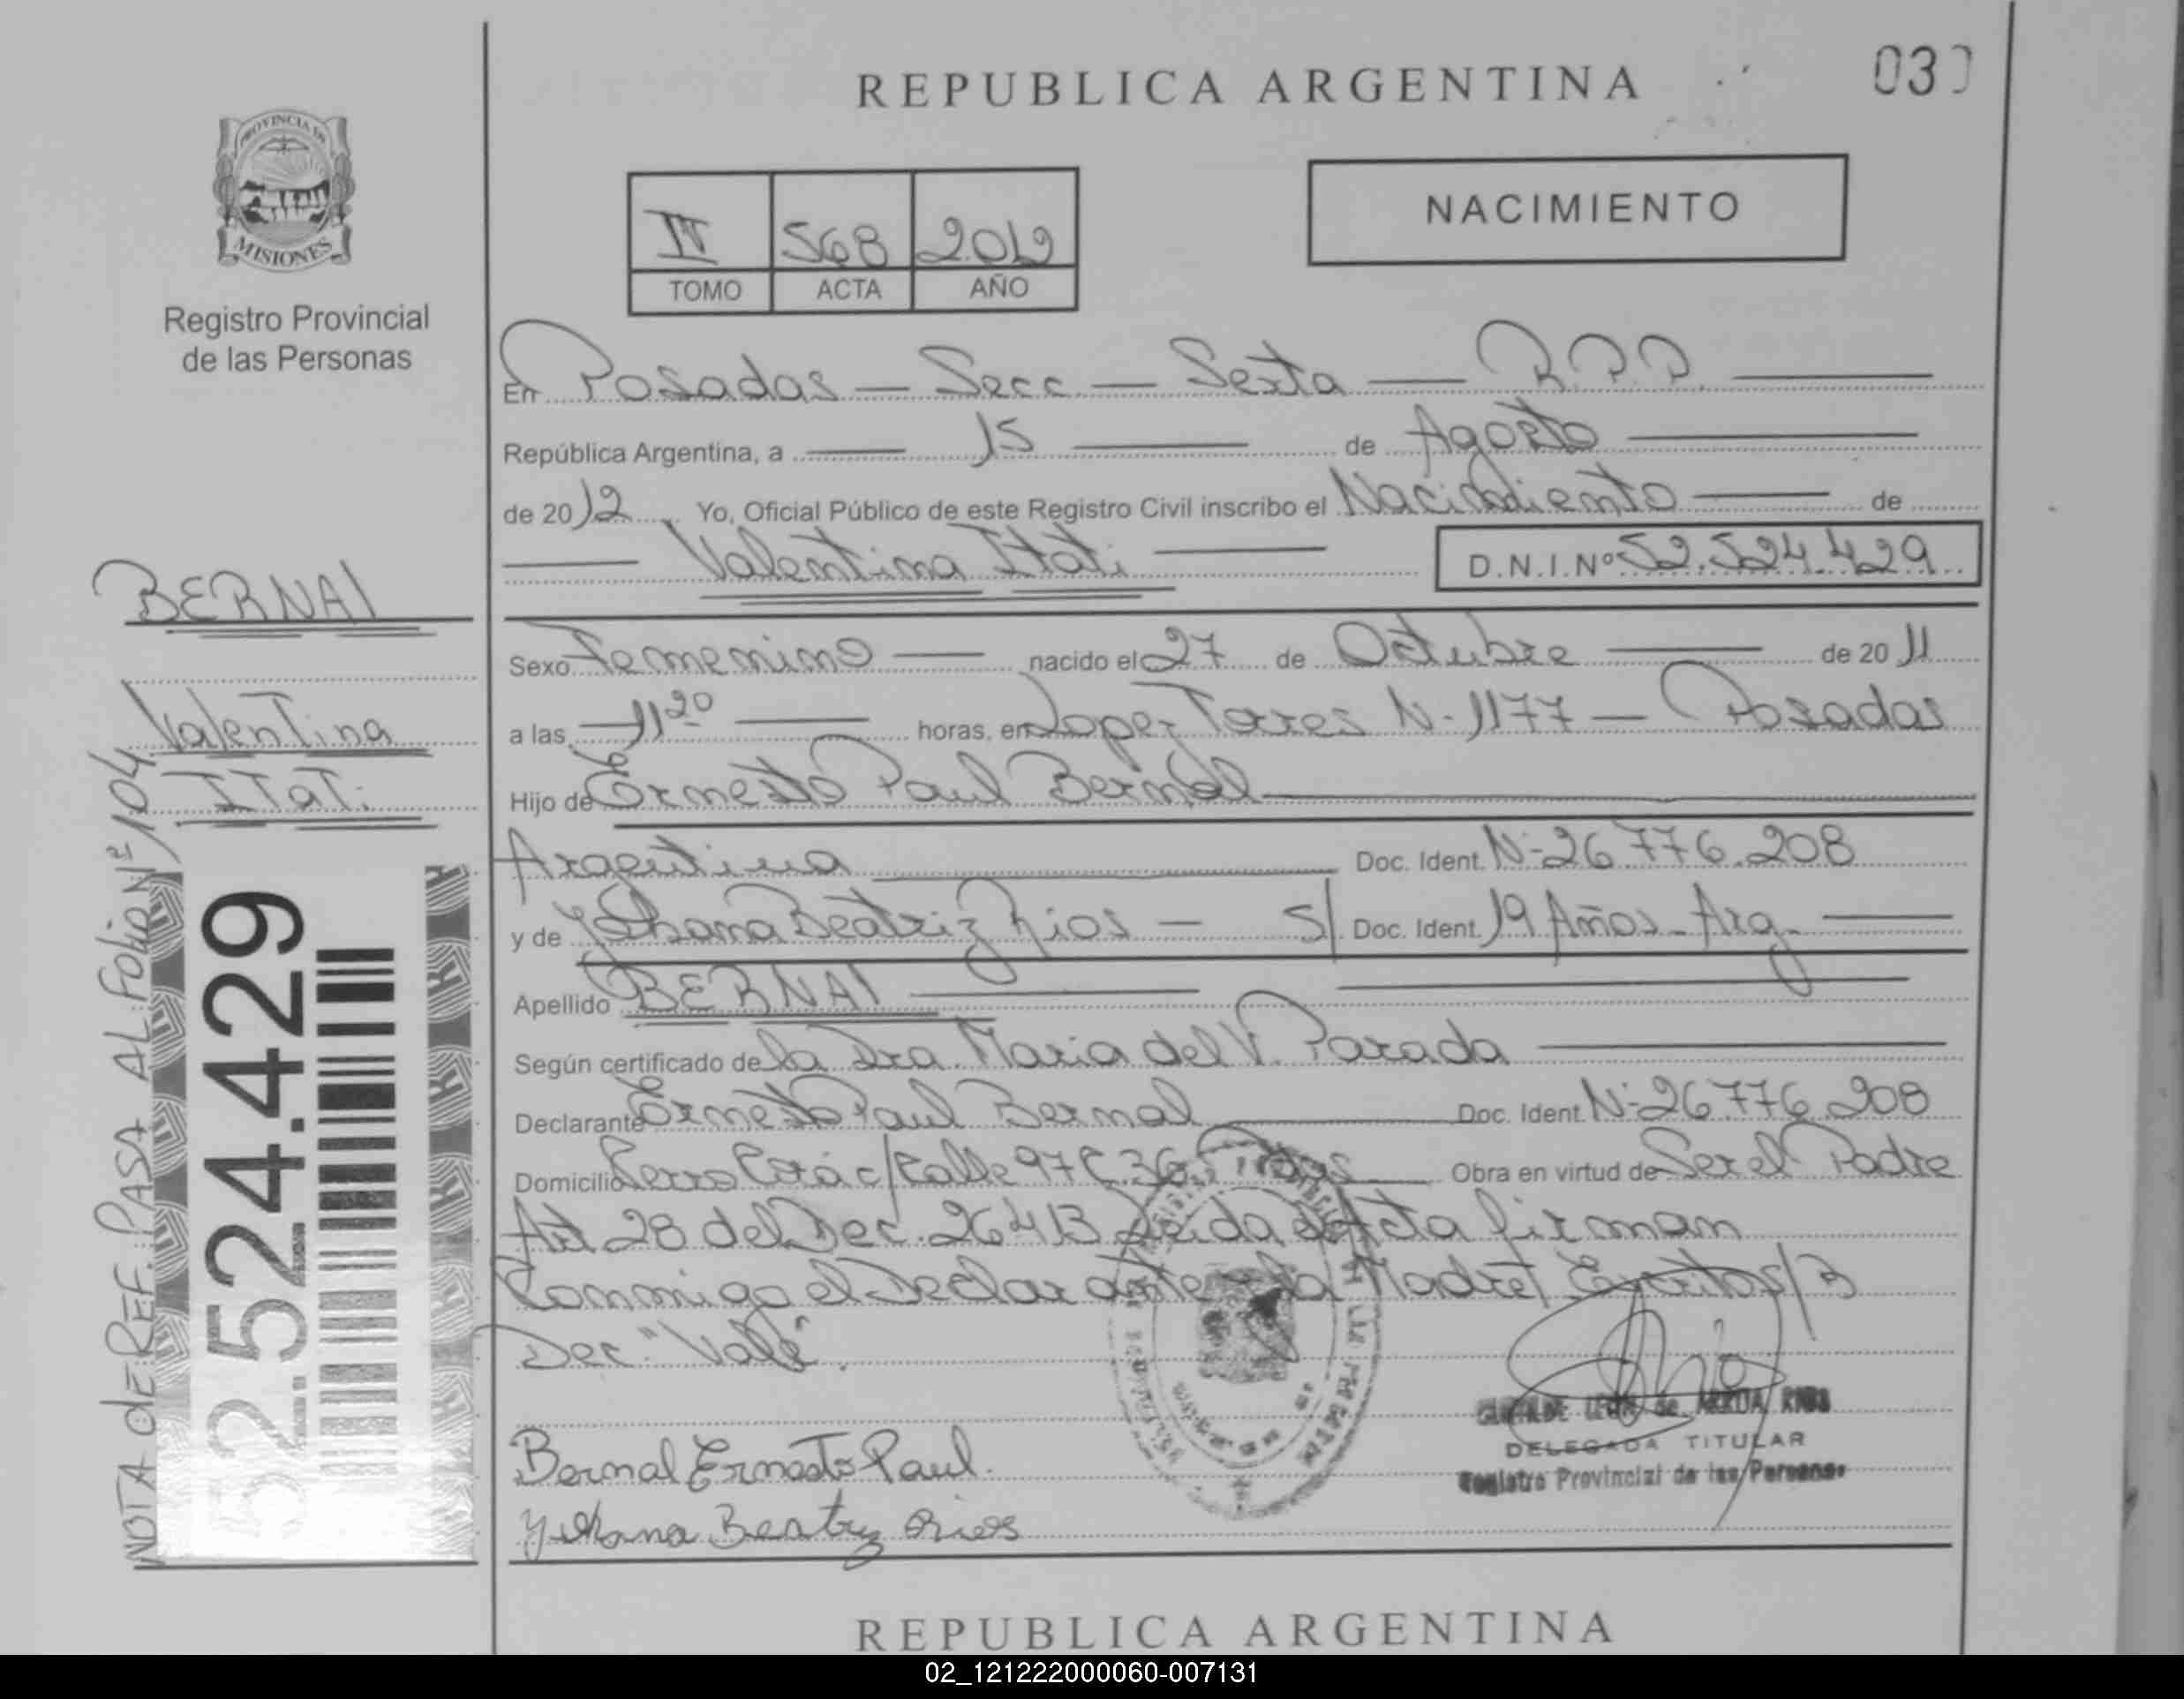 REPUBLICA ARGENTINA
03
PROVINCIA DE
MISIONES
Registro Provincial
de las Personas
II 568 2012
TOMO ACTA AÑO
NACIMIENTO
En Posadas — Secc — Sexta — R.P.P.
República Argentina, a — 15 — de Agosto
de 2012. Yo, Oficial Público de este Registro Civil inscribo el Nacimiento — de
Valentina Itati
D.N.I.Nº 52.524.429
BERNAL
Valentina
ITATI
Sexo Femenino — nacido el 27 de Octubre — de 2011
a las — 11 20 — horas, en Lopez Torres N-1177 — Posadas
Hijo de Ernesto Paul Bernal
Argentina Doc. Ident. N-26776.208
y de Yohana Beatriz Rios — S/ Doc. Ident. 19 Años - Arg.
Apellido BERNAL
Según certificado de la Dra. Maria del V. Parada
Declarante Ernesto Paul Bernal Doc. Ident. N-26776.208
Domicilio Cerro Corá c/Calle 97 C.36 Obra en virtud de Ser el Padre
Art 28 del Dec. 26413 Leida el Acta firman
Conmigo el Declarante la Madre
Dec "Vale".
Bernal Ernesto Paul.
Yohana Beatriz Rios
DELEGADA TITULAR
Registro Provincial de las Personas
NOTA de REF. PASA AL FOLIO Nº 104
52.524.429
REPUBLICA ARGENTINA
02_121222000060-007131